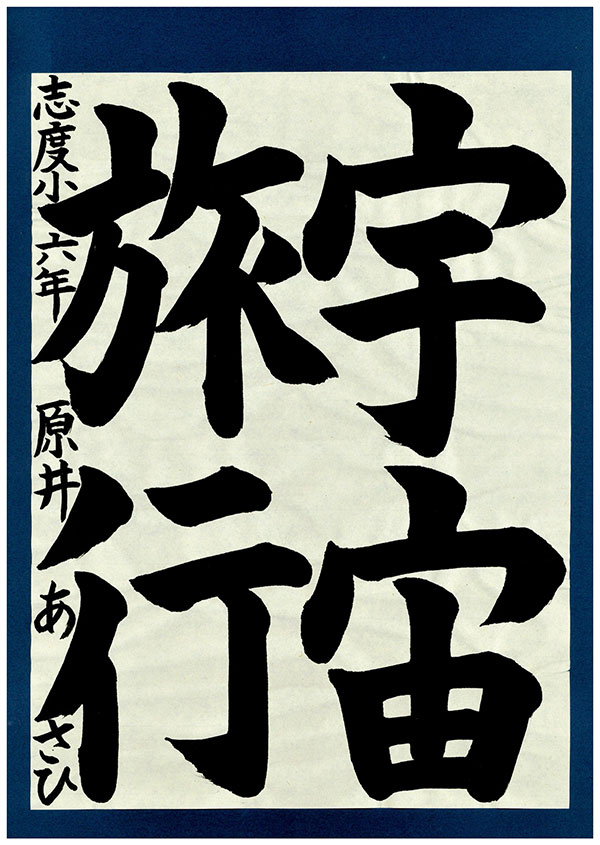 宇宙
旅行
志度小 六年 原井 あさひ